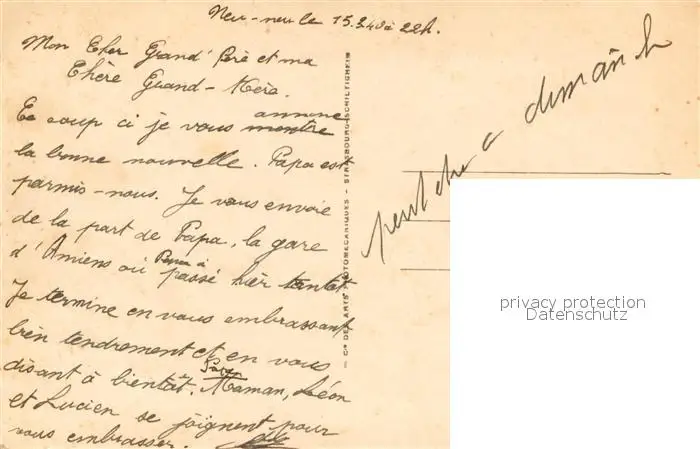 Neu-neu le 15.3.40 à 22h.
Mon Cher Grand'Père et ma
Chère Grand-Mère.
Ce coup ci je vous montre annonce
la bonne nouvelle. Papa est
parmis-nous. Je vous envoie
de la part de Papa, la gare
d'Amiens où Papa a passé hier tantot
Je termine en vous embrassant
bien tendrement et en vous
disant à bientôt. Papa Maman, Léon
et Lucien se joignent pour
vous embrasser.
peut etre a dimanch
— Cie DES ARTS PHOTOMÉCANIQUES - STRASBOURG-SCHILTIGHEIM
privacy protection
Datenschutz